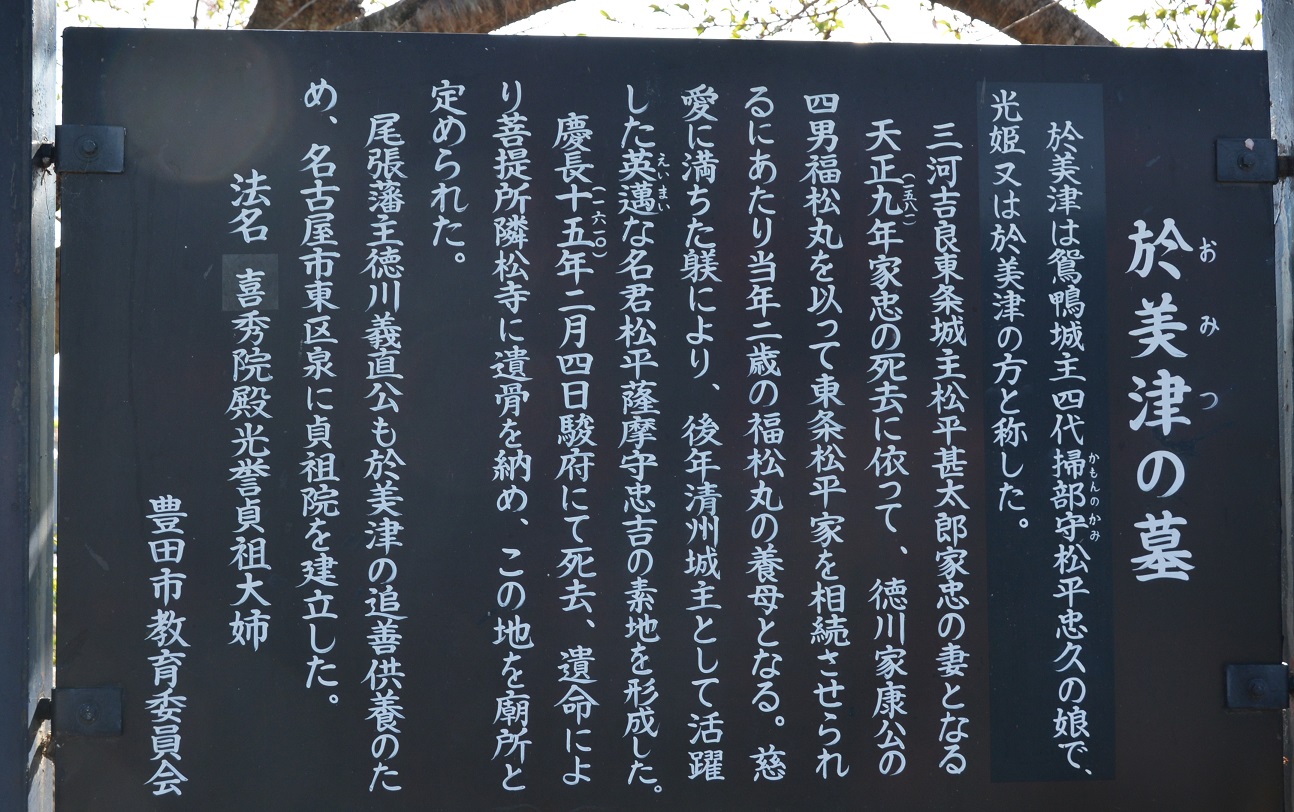 於美津の墓
おみつ
於美津は鴛鴨城主四代掃部守松平忠久の娘で、
かもんのかみ
光姫又は於美津の方と称した。
三河吉良東条城主松平甚太郎家忠の妻となる
天正九年家忠の死去に依って、徳川家康公の
(一五八一)
四男福松丸を以って東条松平家を相続させられ
るにあたり当年二歳の福松丸の養母となる。慈
愛に満ちた躾により、後年清州城主として活躍
した英邁な名君松平薩摩守忠吉の素地を形成した。
えいまい
慶長十五年二月四日駿府にて死去、遺命によ
(一六一〇)
り菩提所隣松寺に遺骨を納め、この地を廟所と
定められた。
尾張藩主徳川義直公も於美津の追善供養のた
め、名古屋市東区泉に貞祖院を建立した。
法名 喜秀院殿光誉貞祖大姉
豊田市教育委員会